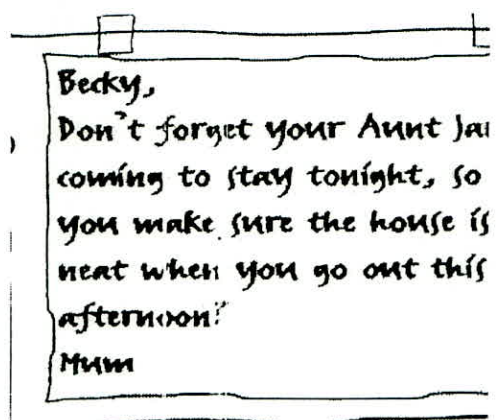 Becky,
Don't forget your Aunt Ja
coming to stay tonight, so
you make sure the house is
neat when you go out this
afternoon?
Mum